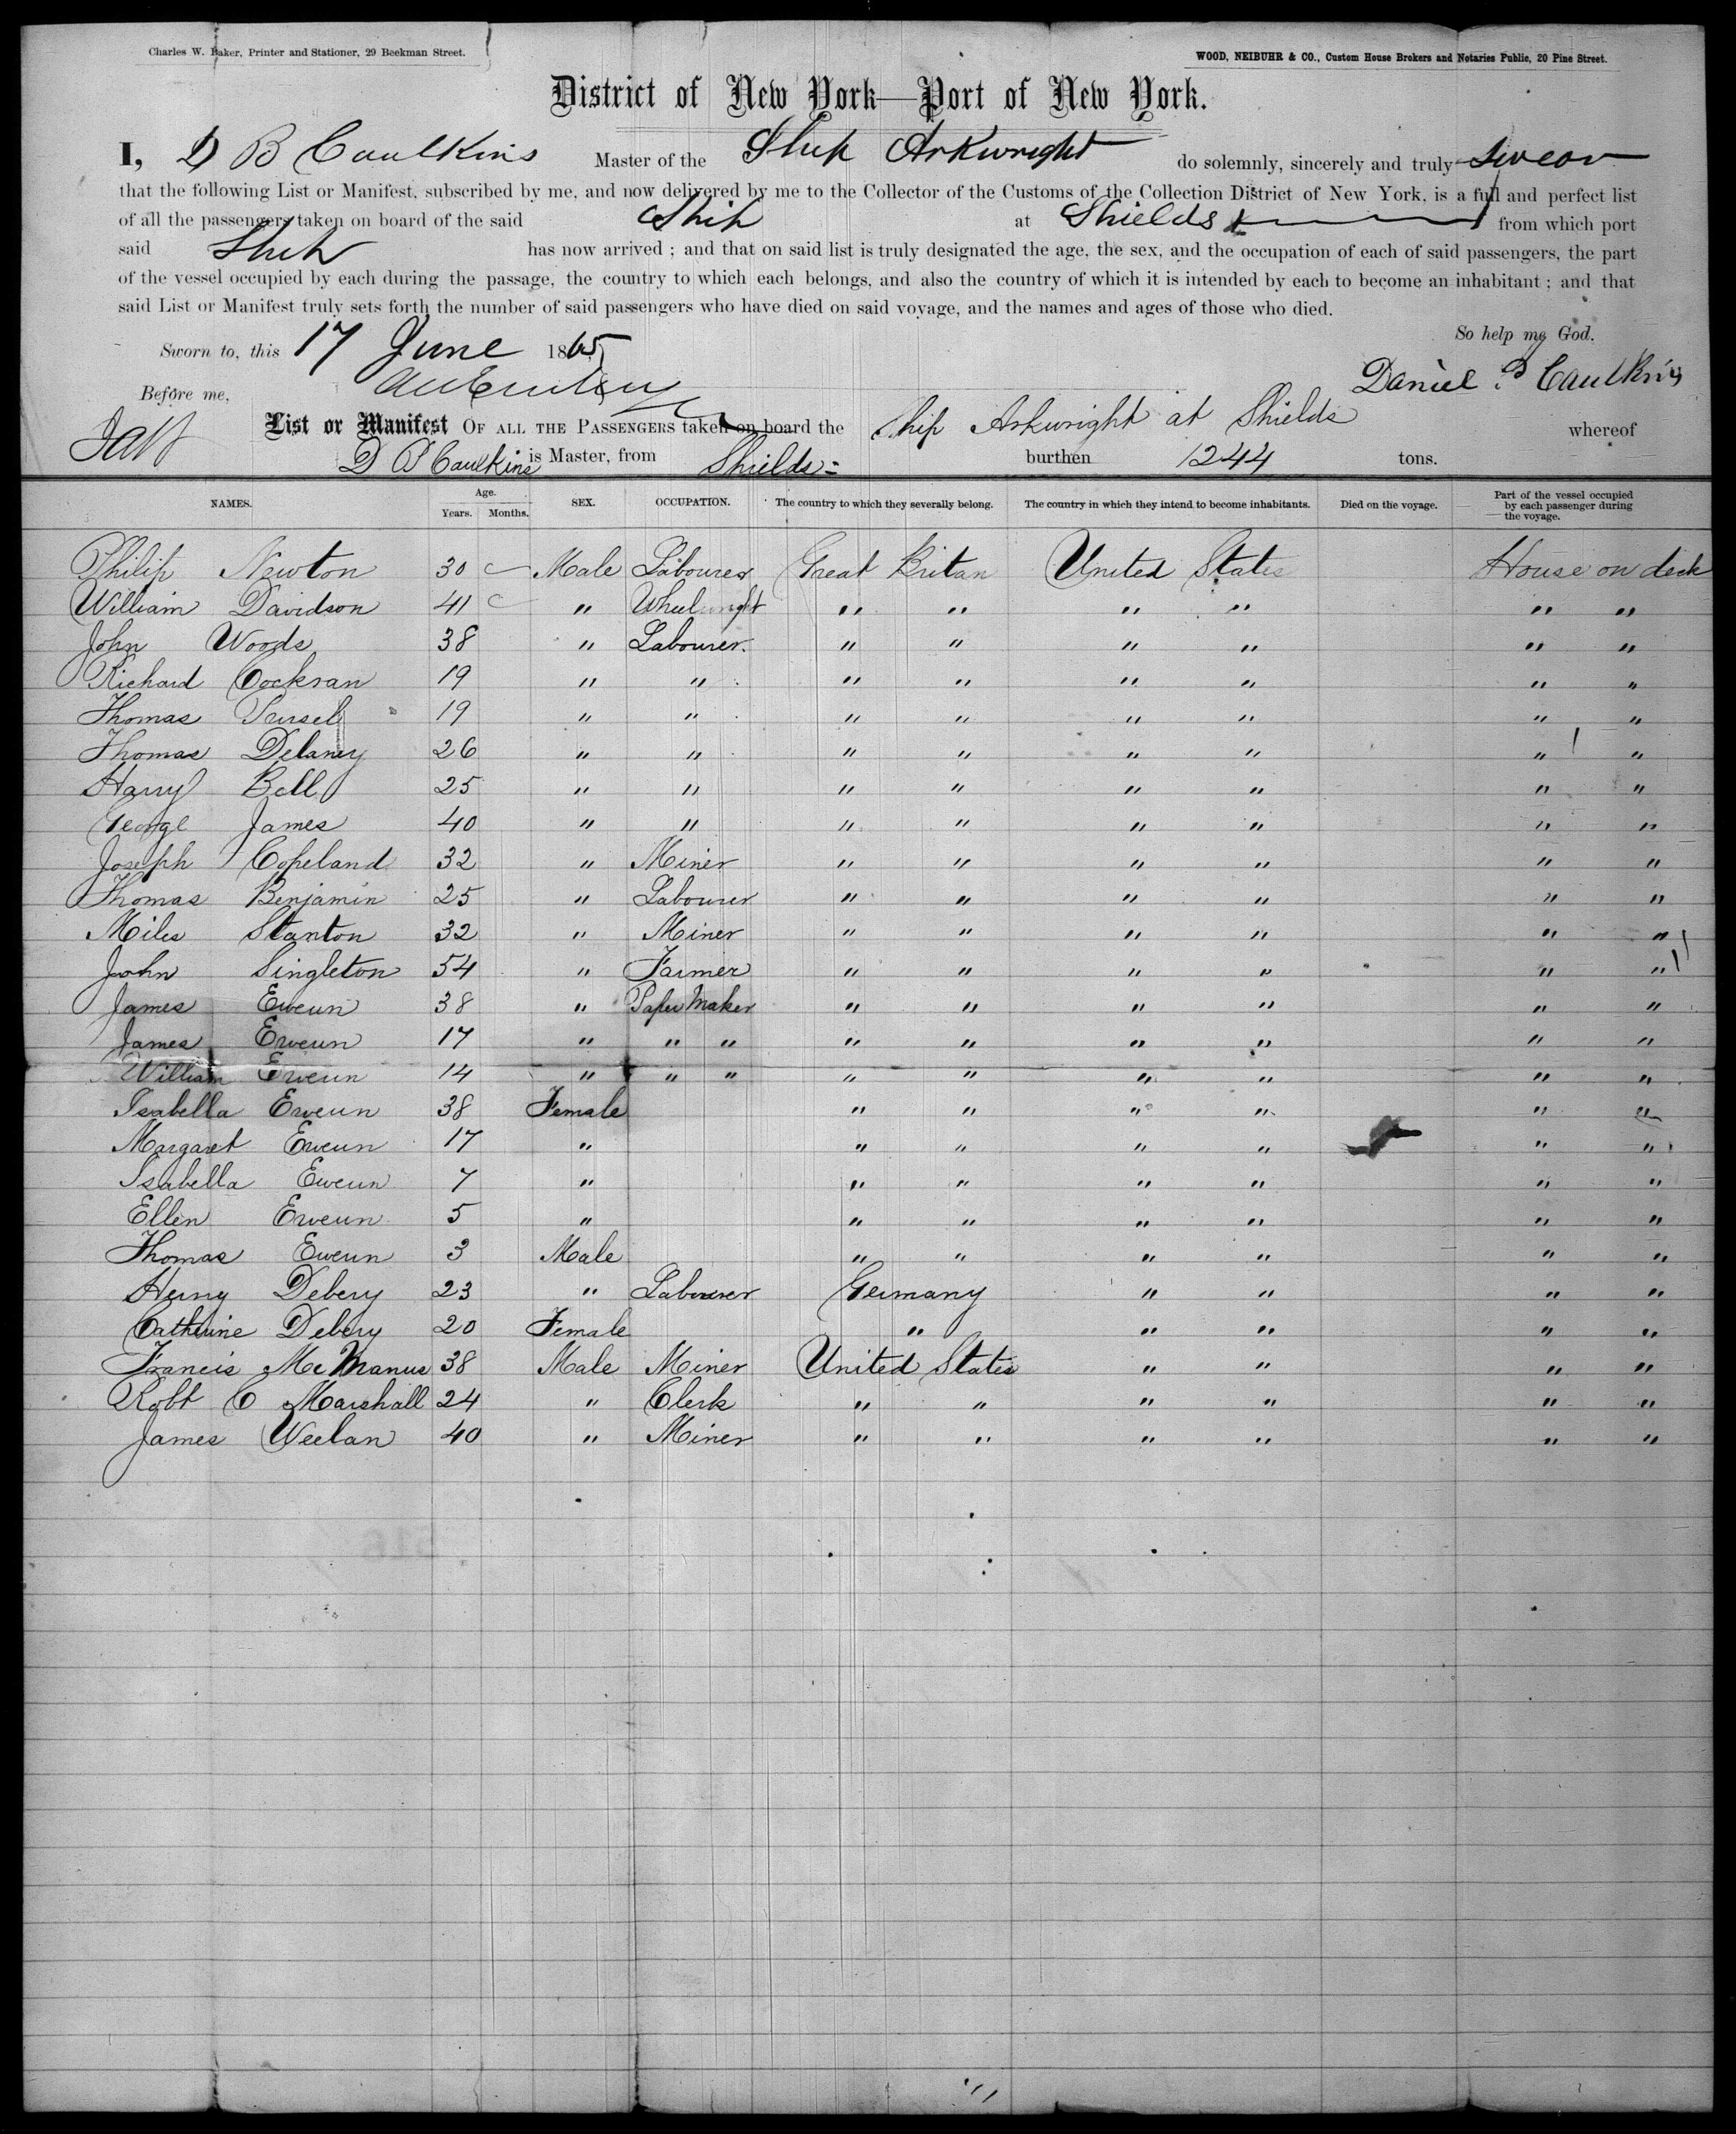 Charles W. Baker, Printer and Stationer, 29 Beekman Street.
WOOD, NEIBUHR & CO., Custom House Brokers and Notaries Public, 20 Pine Street.
District of New York—Port of New York.
I, D B Caulkins Master of the Ship Arkwright do solemnly, sincerely and truly swear
that the following List or Manifest, subscribed by me, and now delivered by me to the Collector of the Customs of the Collection District of New York, is a full and perfect list
of all the passengers taken on board of the said Ship at Shields from which port
said Ship has now arrived ; and that on said list is truly designated the age, the sex, and the occupation of each of said passengers, the part
of the vessel occupied by each during the passage, the country to which each belongs, and also the country of which it is intended by each to become an inhabitant ; and that
said List or Manifest truly sets forth the number of said passengers who have died on said voyage, and the names and ages of those who died.
So help me God.
Sworn to, this 17 June 1865
Daniel B Caulkins
Before me,
List or Manifest OF ALL THE PASSENGERS taken on board the Ship Arkwright at Shields whereof
D B Caulkins is Master, from Shields burthen 1244 tons.
NAMES. Age. Years. Months. SEX. OCCUPATION. The country to which they severally belong. The country in which they intend to become inhabitants. Died on the voyage. Part of the vessel occupied by each passenger during the voyage.
Philip Newton 30 Male Labourer Great Britan United States House on deck
William Davidson 41 " Wheelwright " " " " " "
John Woods 38 " Labourer. " " " " " "
Richard Cockran 19 " " " " " " " "
Thomas Pursel 19 " " " " " " " "
Thomas Delaney 26 " " " " " " " "
Harry Bell 25 " " " " " " " "
George James 40 " " " " " " " "
Joseph Copeland 32 " Miner " " " " " "
Thomas Benjamin 25 " Labourer " " " " " "
Miles Stanton 32 " Miner " " " " " "
John Singleton 54 " Farmer " " " " " "
James Eweun 38 " Paper Maker " " " " " "
James Erweun 17 " " " " " " " " "
William Erweun 14 " " " " " " " " "
Isabella Erweun 38 Female " " " " " "
Margaret Erweun 17 " " " " " " "
Isabella Eweun 7 " " " " " " "
Ellen Erweun 5 " " " " " " "
Thomas Eweun 3 Male " " " " " "
Henry Debery 23 " Labourer Germany " " " "
Catherine Debery 20 Female " " " " "
Francis McManus 38 Male Miner United States " " " "
Robt C Marshall 24 " Clerk " " " " " "
James Weelan 40 " Miner " " " " " "